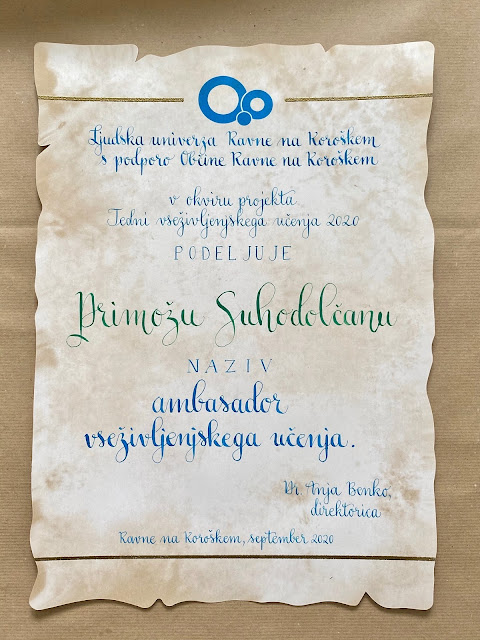 Ljudska univerza Ravne na Koroškem
s podporo Občine Ravne na Koroškem
v okviru projekta
Tedni vseživljenjskega učenja 2020
PODELJUJE
Primožu Suhodolčanu
NAZIV
ambasador
vseživljenjskega učenja.
Dr. Anja Benko,
direktorica
Ravne na Koroškem, september 2020